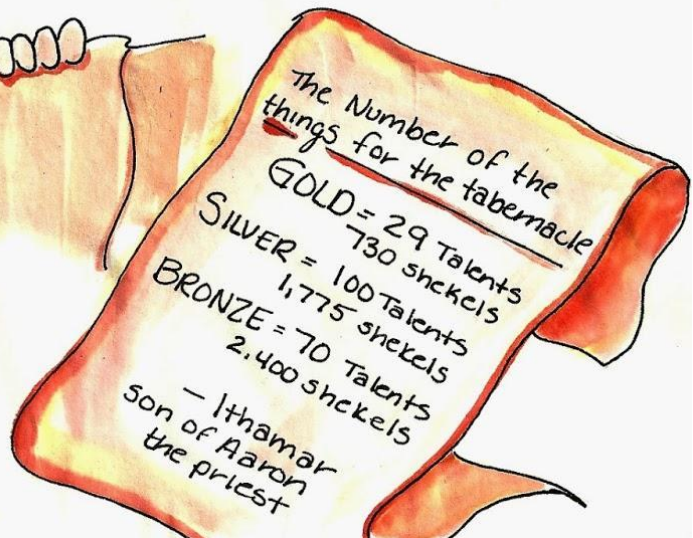 The Number of the
things for the tabernacle
GOLD = 29 Talents
730 shekels
SILVER = 100 Talents
1,775 shekels
BRONZE = 70 Talents
2,400 shekels
- Ithamar
son of Aaron
the priest